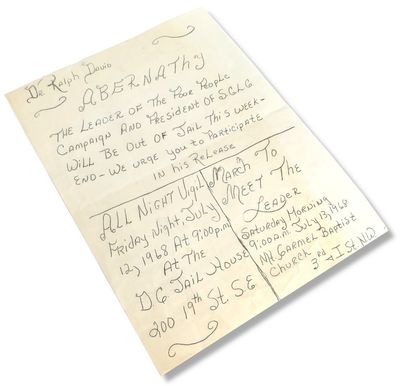 Dr. Ralph David
ABERNATHY
THE LEADER OF THE POOR PEOPLE
CAMPAIGN AND PRESIDENT OF S.C.L.C
WILL BE OUT OF JAIL THIS WEEK-
END - WE URGE YOU TO PARTICIPATE
IN HIS RELEASE
ALL NIGHT VIGIL
FRIDAY NIGHT, JULY
12, 1968 AT 9:00p.m
AT THE
D.C. JAIL HOUSE
200 19th St. S.E
MARCH TO
MEET THE
LEADER
SATURDAY MORNING
9:00 a.m. JULY 13, 1968
Mt. CARMEL BAPTIST
CHURCH 3rd & I St. N.W